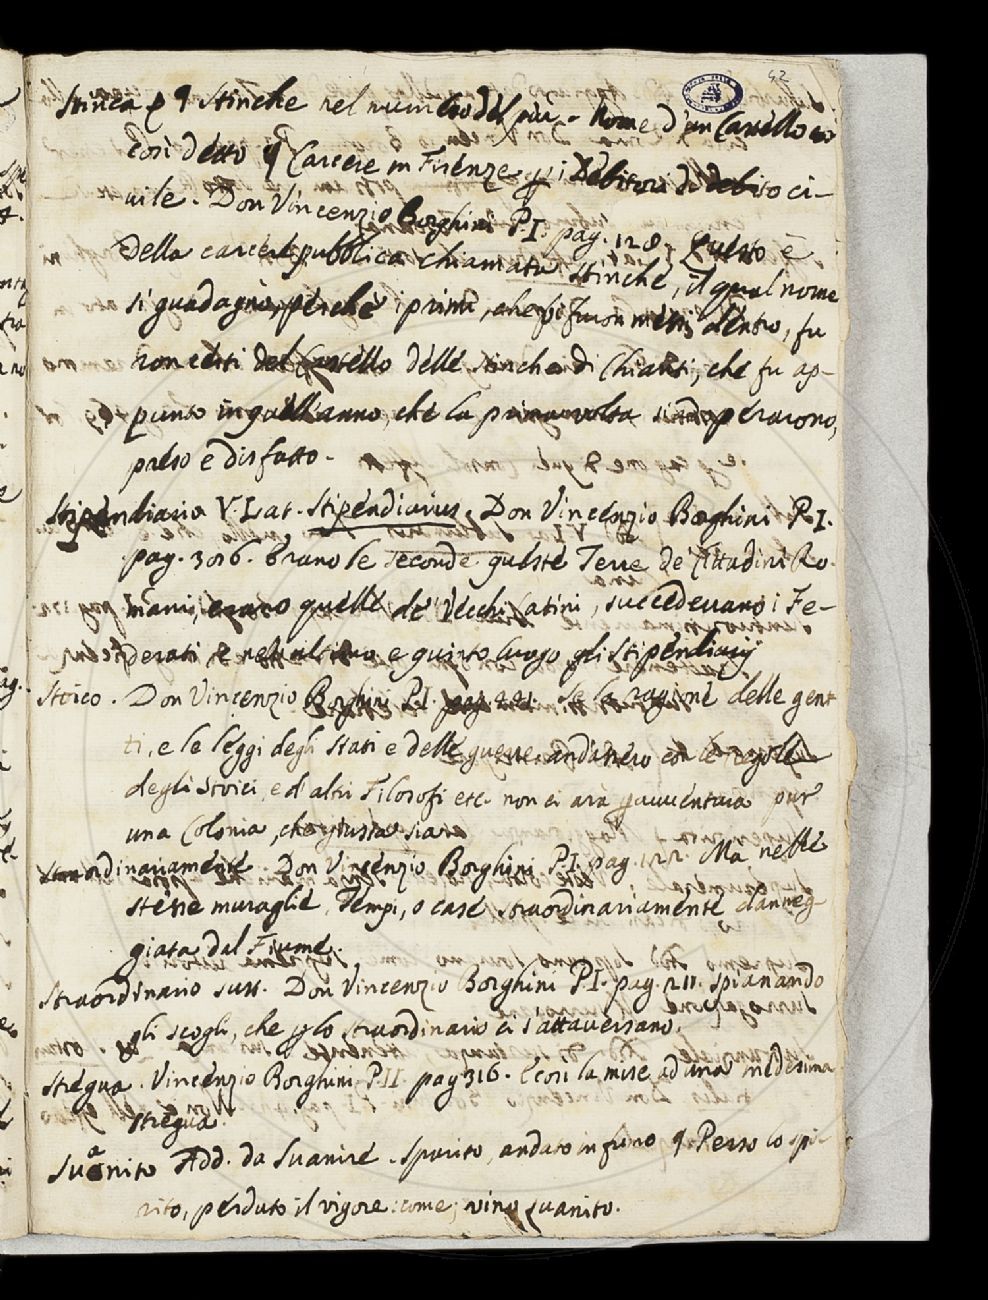 42
Stinca e q Stinche nel numero del più. Nome d'un Castello
così detto q Carcere in Firenze p i Debitori di debito ci-
vile. Don Vincenzio Borghini P.I. pag. 128. Questo è
Della carcere pubblica chiamata Stinche, il qual nome
si guadagnò, perchè i primi, che vi furon messi dentro, fu
ron certi del Castello delle Stinche di Chianti, che fu ap-
punto in quell'anno, che la prima volta si adoperarono,
preso e disfatto.
Stipendiario V. Lat. Stipendiarius. Don Vincenzio Borghini P.I.
pag. 306. Erano le seconde queste Terre de' Cittadini Ro-
mani, erano quelle de' Vecchi Latini, succedevano i Fe-
derati, e nell'ultimo e quinto luogo gli Stipendiarij
Stoico. Don Vincenzio Borghini P.I. pag. 221. Se la ragione delle gen
ti, e le leggi degli Stati e delle guerre andassero con le regole
degli Stoici, e d'altri Filosofi etc. non ci arà p avventura pur
una Colonia, che giusta sia
Straordinariamente. Don Vincenzio Borghini P.I. pag. 122. Ma nelle
stesse muraglie, Tempi, o case straordinariamente dànneg-
giata dal Fiume.
Straordinario sust. Don Vincenzio Borghini P.I. pag. 211. spianando
gli scogli, che p lo straordinario ci s'attaversano.
Stregua. Vincenzio Borghini P.II. pag 316. E così la mise ad una medesima
stregua.
Suanito Add. da Suanire. Sparito, andato in fumo q Perso lo spi-
rito, perduto il vigore: come; vino suanito.